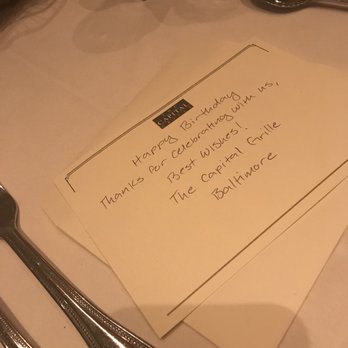 CAPITAL
Happy Birthday
Thanks for celebrating with us,
Best Wishes!
The Capital Grille
Baltimore